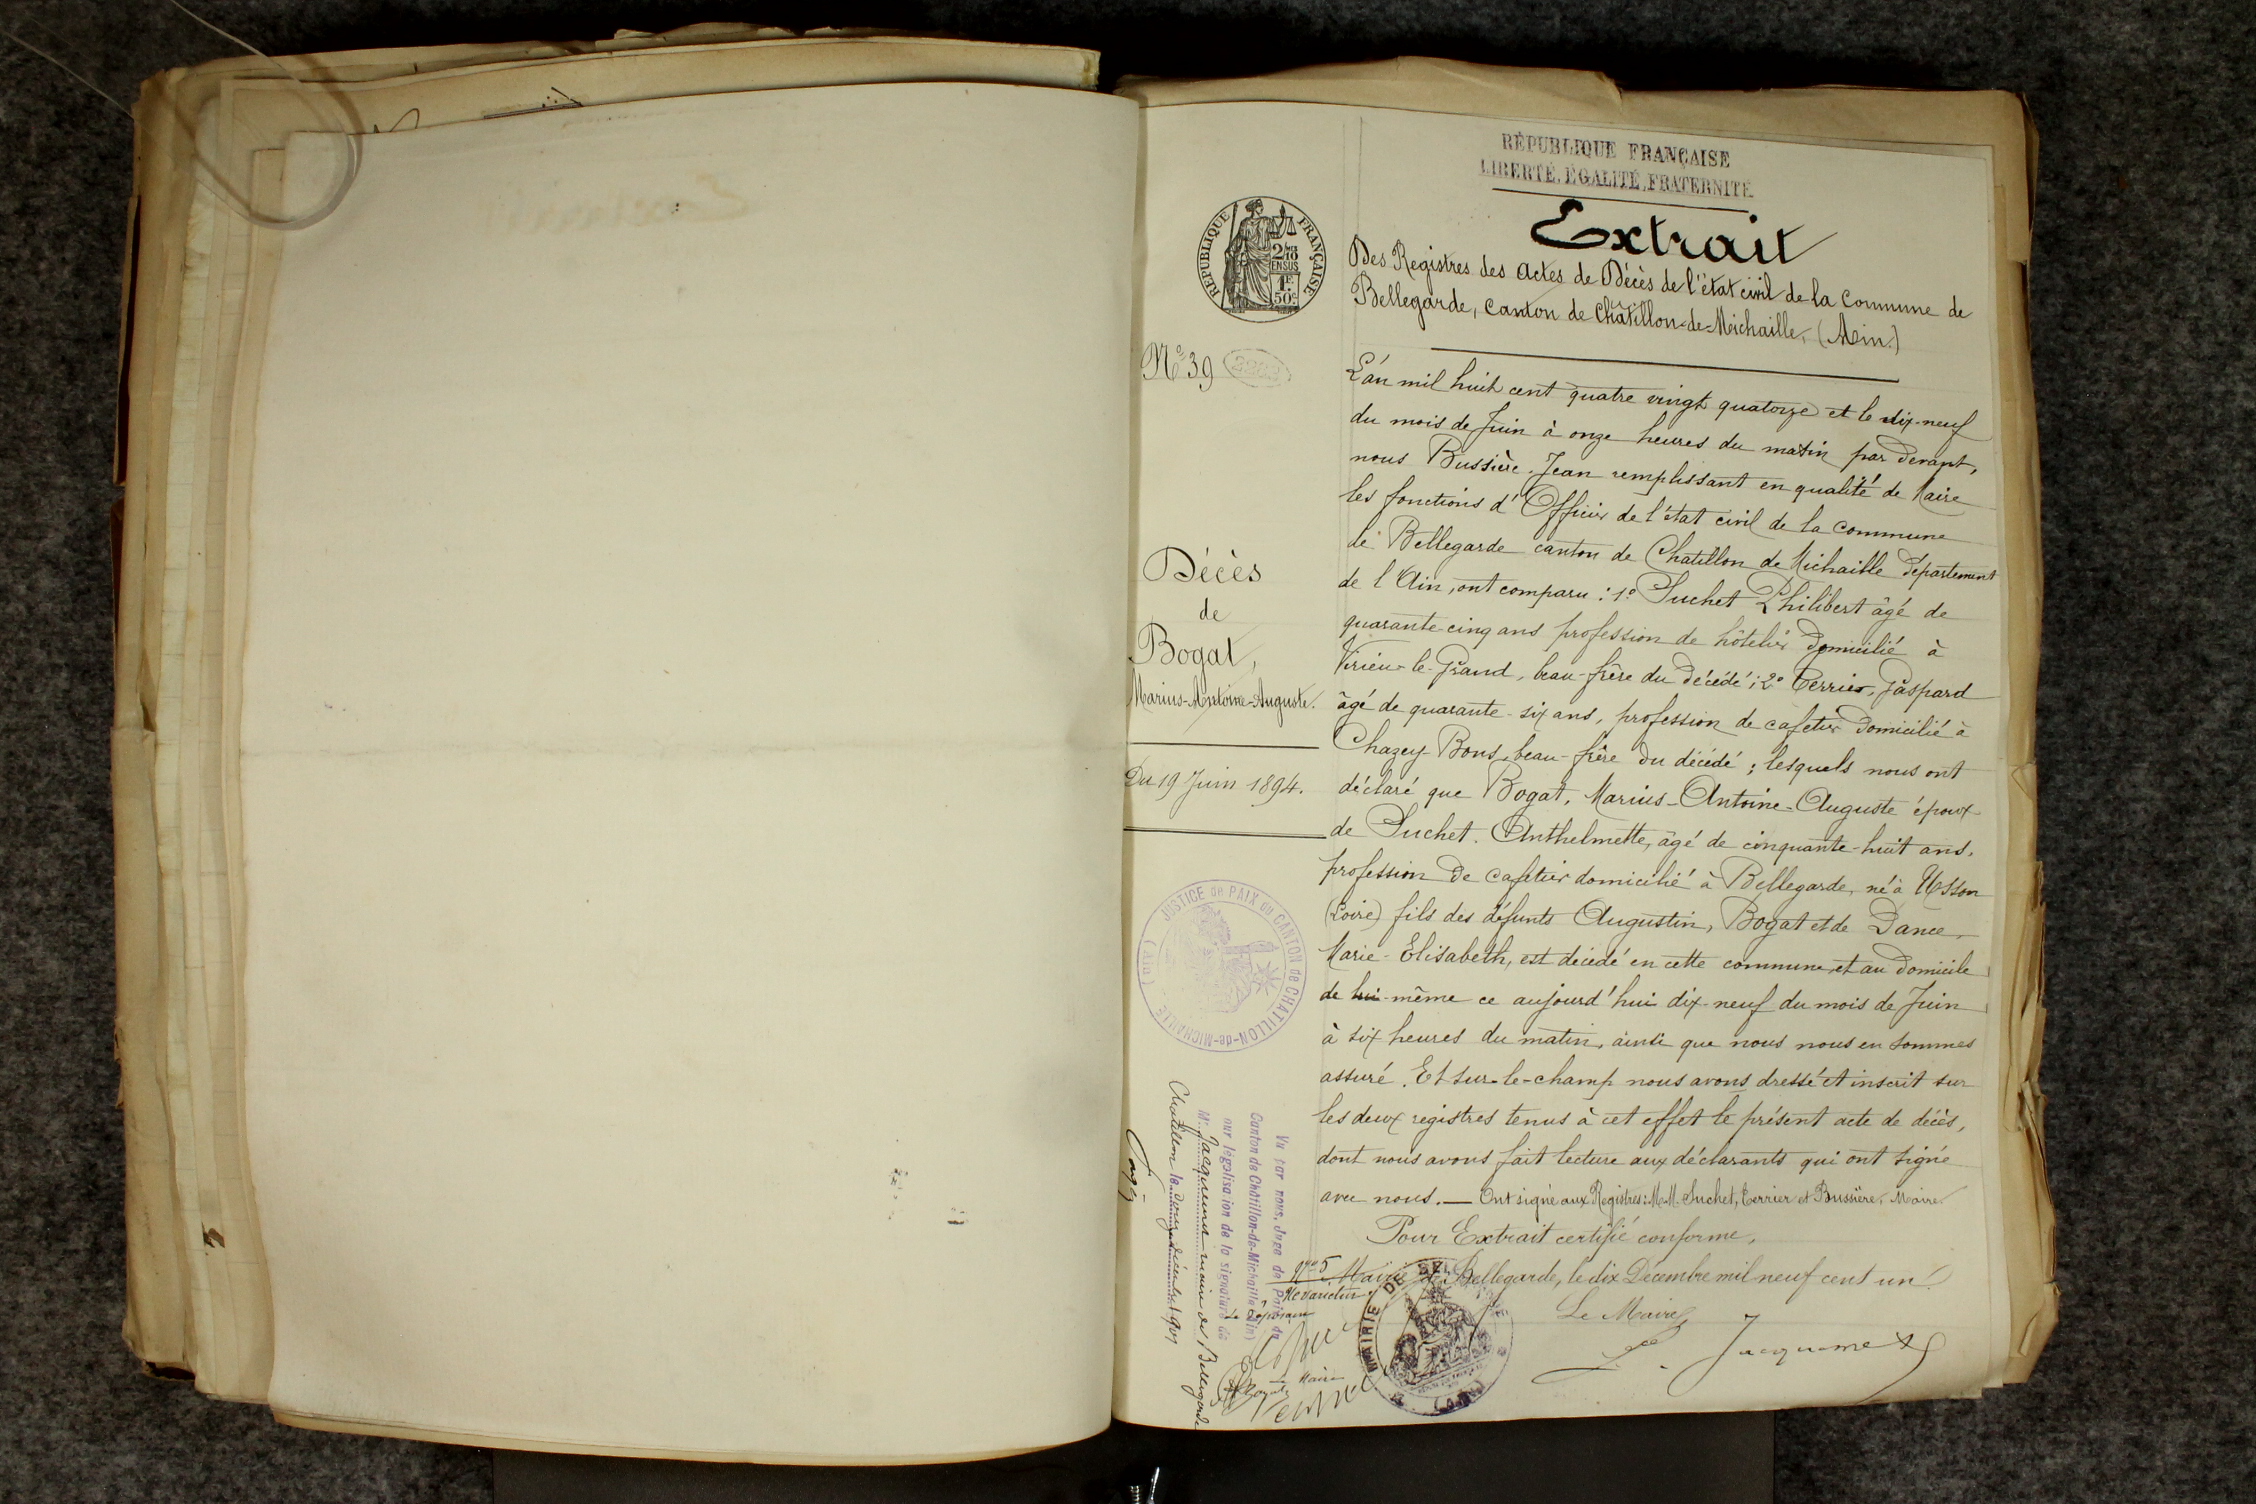 RÉPUBLIQUE FRANÇAISE
LIBERTÉ, ÉGALITÉ, FRATERNITÉ
Extrait
Des Registres des actes de Décès de l'état civil de la Commune de
Bellegarde, Canton de Châtillon-de-Michaille, (Ain.)
RÉPUBLIQUE FRANÇAISE
2/10
EN SUS
1F.
50c
No 39
L'an mil huit cent quatre vingt quatorze et le dix-neuf
du mois de Juin à onze heures du matin par devant,
nous Bussière. Jean remplissant en qualité de Maire
les fonctions d'Officier de l'état civil de la commune
de Bellegarde canton de Chatillon de Michaille département
de l'Ain, ont comparu : 1o Suchet Philibert âgé de
quarante-cinq ans profession de hôtelier domicilié à
Virieu-le-Grand, beau-frère du décédé ; 2o Terrier, Gaspard
âgé de quarante-six ans, profession de cafetier domicilié à
Chazey Bons, beau-frère du décédé ; lesquels nous ont
déclaré que Bogat, Marius-Antoine-Auguste époux
de Suchet. Anthelmette, âgé de cinquante-huit ans,
profession de cafetier domicilié à Bellegarde, né à Usson
(Loire) fils des défunts Augustin, Bogat et de Dance,
Marie-Elisabeth, est décédé en cette commune et au domicile
de lui-même ce aujourd'hui dix-neuf du mois de Juin
à six heures du matin, ainsi que nous nous en sommes
assuré. Et sur-le-champ nous avons dressé et inscrit sur
les deux registres tenus à cet effet le présent acte de décès,
dont nous avons fait lecture aux déclarants qui ont signé
avec nous. — Ont signé aux Registres : M.M. Suchet, Terrier et Bussière, Maire.
Pour Extrait certifié conforme,
Mairie de Bellegarde, le dix Décembre mil neuf cent un
Le Maire,
Jacquemet
Décès
de
Bogat,
Marius-Antoine-Auguste.
Du 19 Juin 1894.
JUSTICE de PAIX du CANTON de CHATILLON-de-MICHAILLE (Ain)
Vu par nous, Juge de Paix du
Canton de Châtillon-de-Michaille (Ain)
pour légalisation de la signature de
Mr Jacquemet maire de Bellegarde
Chatillon le douze décembre 1901
Ne varietur
Le Déposant
Le Maire
MAIRIE DE BELLEGARDE
(AIN)